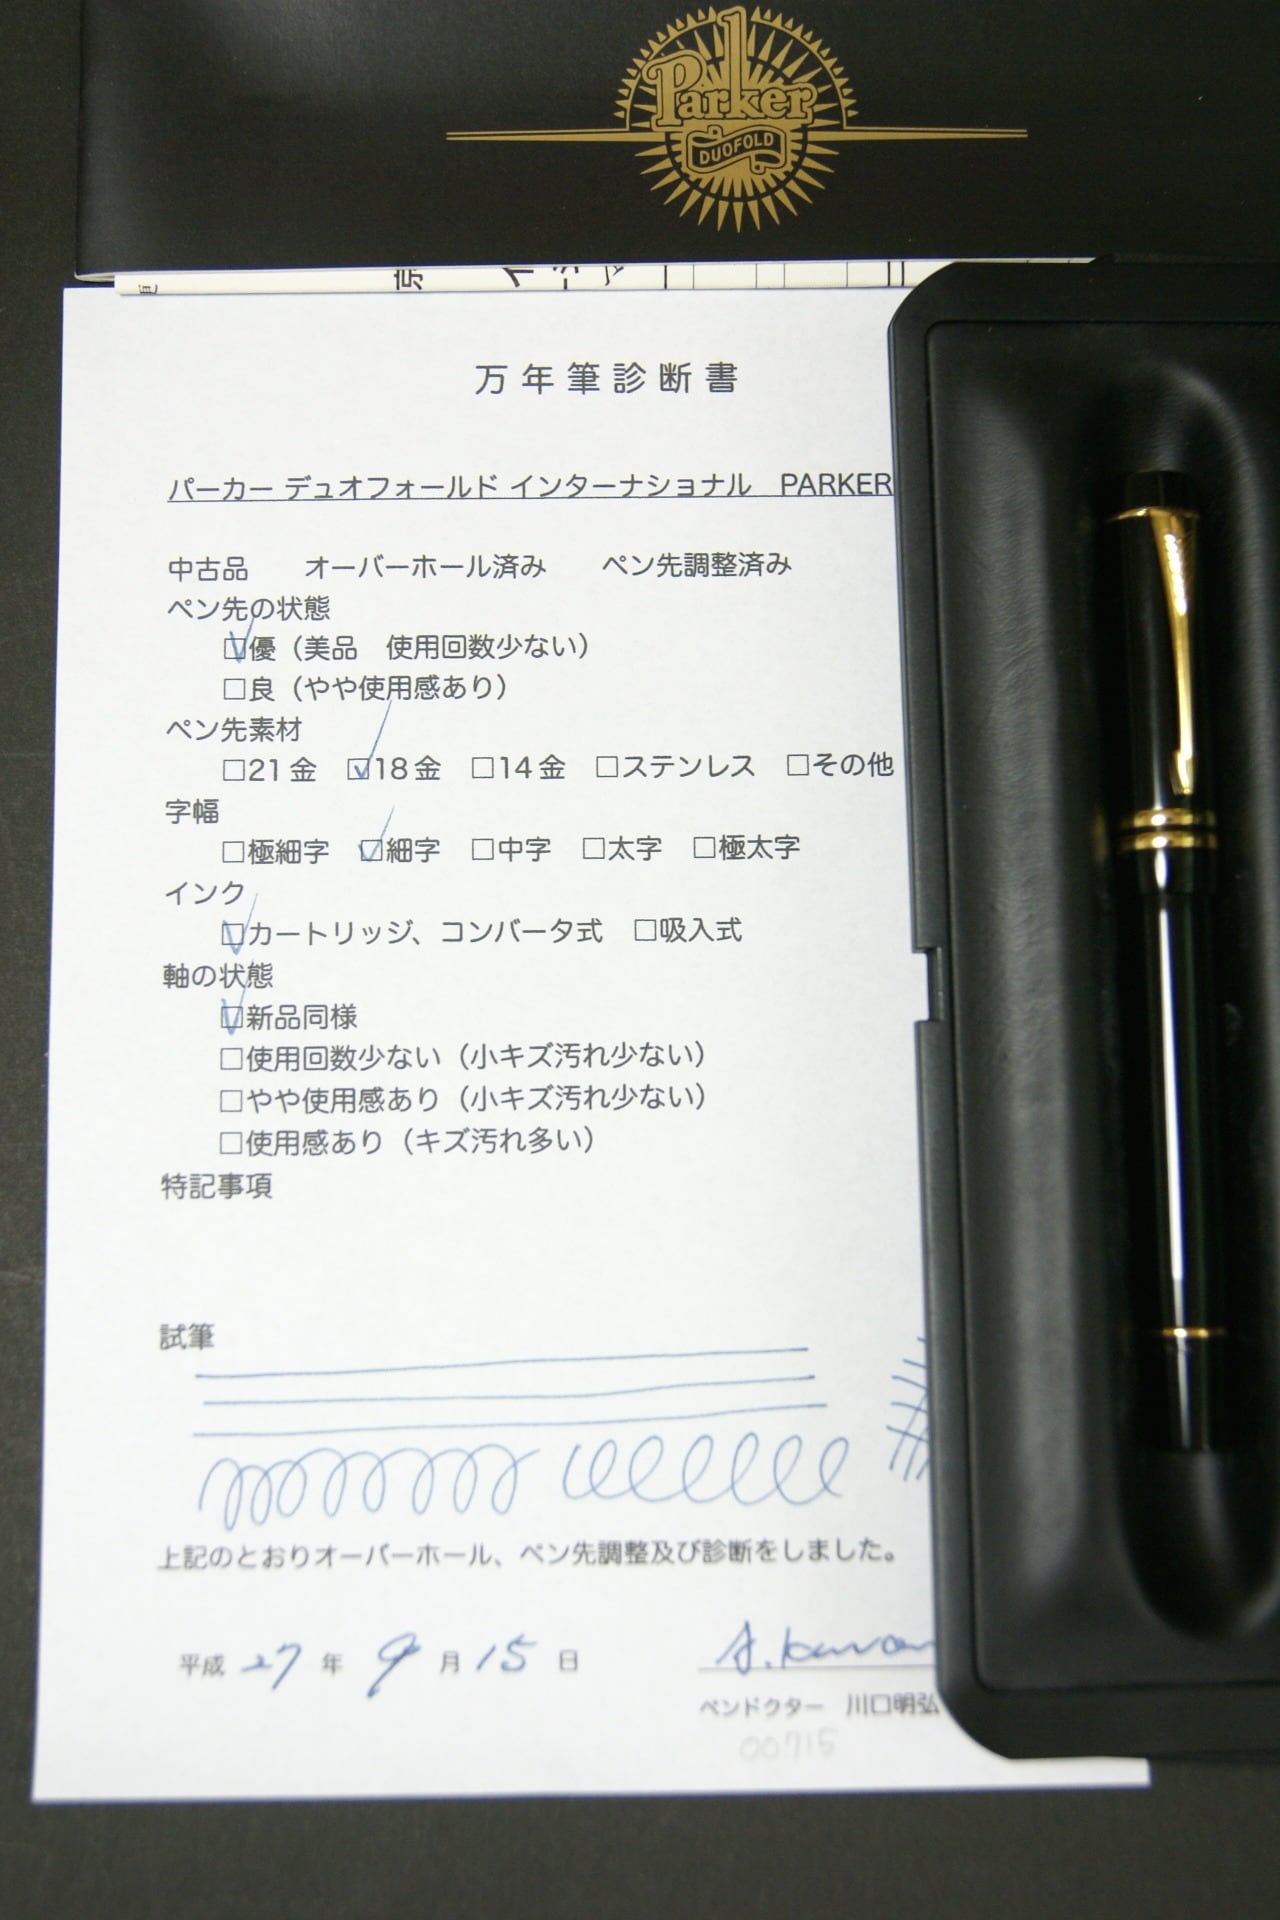 Parker
DUOFOLD
万年筆診断書
パーカー デュオフォールド インターナショナル PARKER
中古品 オーバーホール済み ペン先調整済み
ペン先の状態
☑優（美品 使用回数少ない）
□良（やや使用感あり）
ペン先素材
□21金 ☑18金 □14金 □ステンレス □その他
字幅
□極細字 ☑細字 □中字 □太字 □極太字
インク
☑カートリッジ、コンバータ式 □吸入式
軸の状態
☑新品同様
□使用回数少ない（小キズ汚れ少ない）
□やや使用感あり（小キズ汚れ少ない）
□使用感あり（キズ汚れ多い）
特記事項
試筆
上記のとおりオーバーホール、ペン先調整及び診断をしました。
平成 27 年 9 月 15 日
ペンドクター 川口明弘
00715